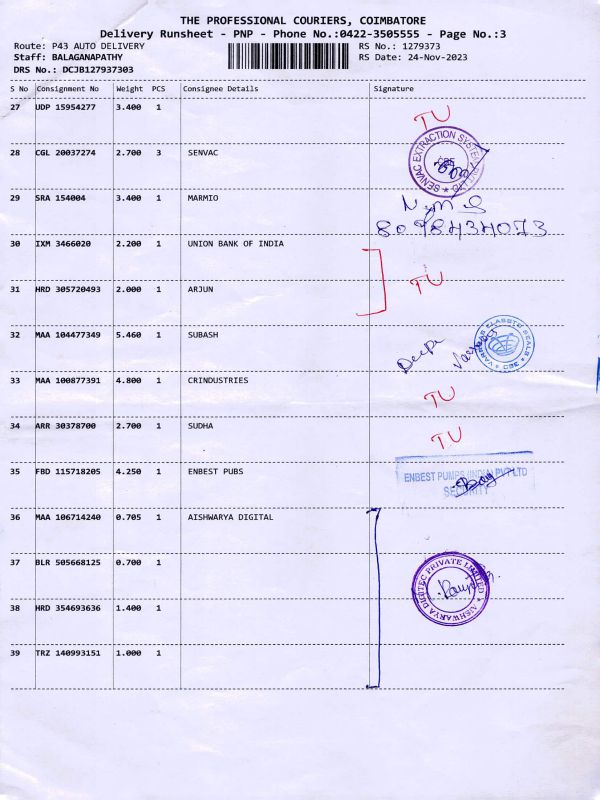 THE PROFESSIONAL COURIERS, COIMBATORE
Delivery Runsheet - PNP - Phone No.:0422-3505555 - Page No.:3
Route: P43 AUTO DELIVERY RS No.: 1279373
Staff: BALAGANAPATHY RS Date: 24-Nov-2023
DRS No.: DCJB127937303
S No Consignment No Weight PCS Consignee Details Signature
27 UDP 15954277 3.400 1 TU
28 CGL 20037274 2.700 3 SENVAC
SENVAC EXTRACTION SYSTEM PVT LTD
CBE
29 SRA 154004 3.400 1 MARMIO
8098434073
30 IXM 3466020 2.200 1 UNION BANK OF INDIA
31 HRD 305720493 2.000 1 ARJUN TU
32 MAA 104477349 5.460 1 SUBASH
Deepa
CBE
33 MAA 100877391 4.800 1 CRINDUSTRIES TU
34 ARR 30378700 2.700 1 SUDHA TU
35 FBD 115718205 4.250 1 ENBEST PUBS
ENBEST PUMPS (INDIA) PVT LTD
SECURITY
36 MAA 106714240 0.705 1 AISHWARYA DIGITAL
37 BLR 505668125 0.700 1
AISHWARYA DIGITEC PRIVATE LIMITED
38 HRD 354693636 1.400 1
39 TRZ 140993151 1.000 1